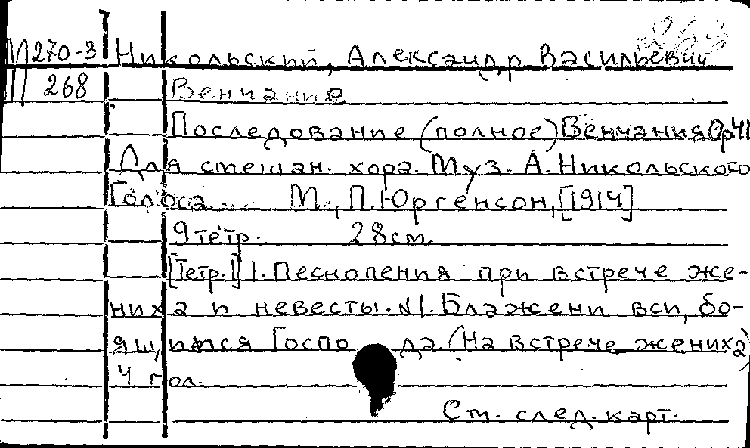 М270-3 Никольский, Александр Васильевич
268 Венчание
Последование (полное) Венчания Ор41
Для смешан. хора. Муз. А. Никольского
Голоса... М., П. Юргенсон, [1914]
9 тетр. 28 см.
[Тетр.] 1. Песнопения при встрече же-
ниха и невесты. №1. Блажени вси, бо-
ящиися Господа. (На встрече жениха)
4 гол.
См. след. карт.